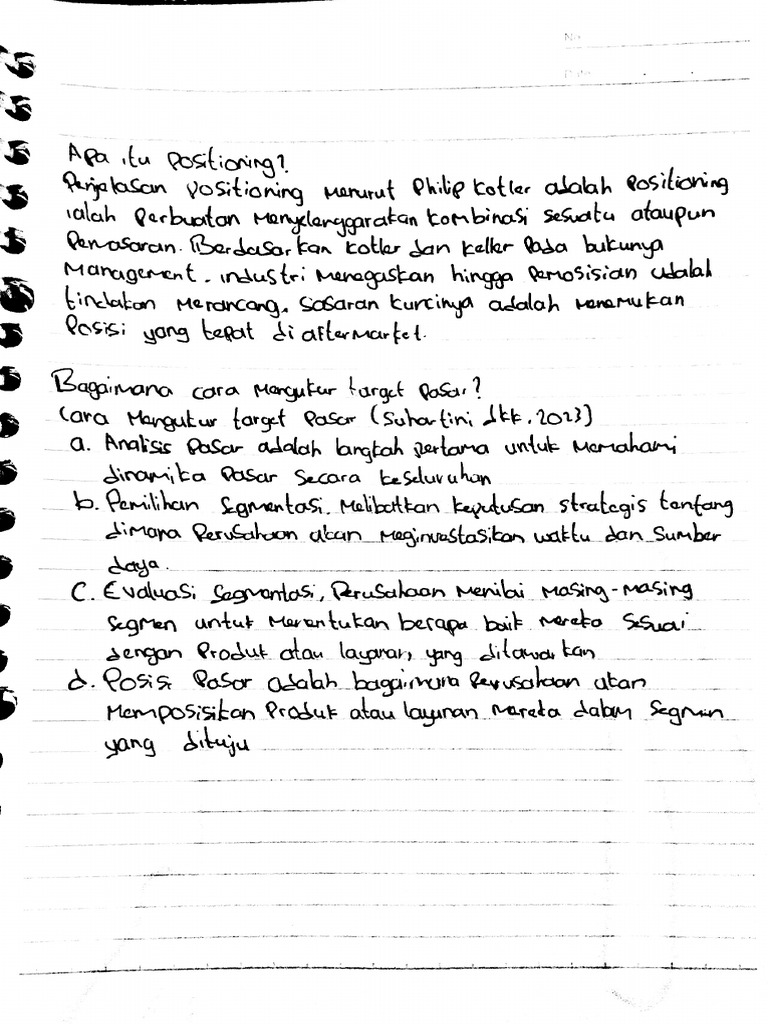 No
Date
Apa itu Positioning?
Penjelasan Positioning menurut Philip Kotler adalah Positioning
ialah Perbuatan Menyelenggarakan kombinasi sesuatu ataupun
Pemasaran. Berdasarkan Kotler dan Keller Pada bukunya
Management. industri Menegaskan hingga Pemosisian adalah
tindakan Merancang. Sasaran kuncinya adalah Menemukan
Posisi yang tepat di aftermarket.
Bagaimana cara Mengukur target Pasar?
Cara Mengukur target Pasar (Suhartini dkk. 2023)
a. Analisis Pasar adalah langkah Pertama untuk Memahami
dinamika Pasar Secara keseluruhan
b. Pemilihan Segmentasi. Melibatkan keputusan strategis tentang
dimana Perusahaan akan Meginvestasikan waktu dan Sumber
daya.
C. Evaluasi Segmentasi, Perusahaan Menilai Masing-Masing
Segmen untuk Menentukan berapa baik Mereka Sesuai
dengan Produk atau layanan, yang ditawarkan
d. Posisi Pasar adalah bagaimana Perusahaan akan
Memposisikan Produk atau layanan Mereka dalam Segmen
yang dituju